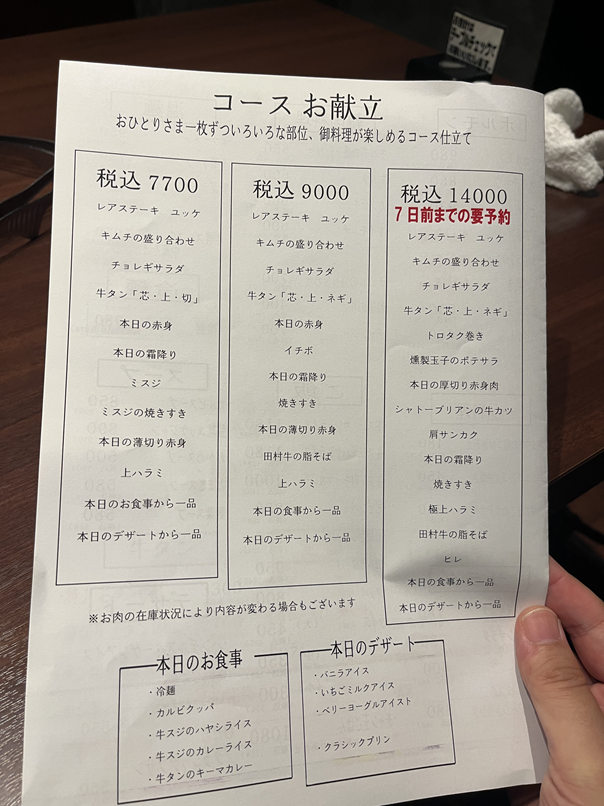 コース お献立
おひとりさま一枚ずついろいろな部位、御料理が楽しめるコース仕立て
税込 7700
レアステーキ ユッケ
キムチの盛り合わせ
チョレギサラダ
牛タン「芯・上・切」
本日の赤身
本日の霜降り
ミスジ
ミスジの焼きすき
本日の薄切り赤身
上ハラミ
本日のお食事から一品
本日のデザートから一品
税込 9000
レアステーキ ユッケ
キムチの盛り合わせ
チョレギサラダ
牛タン「芯・上・ネギ」
本日の赤身
イチボ
本日の霜降り
焼きすき
本日の薄切り赤身
田村牛の脂そば
上ハラミ
本日の食事から一品
本日のデザートから一品
税込 14000
7日前までの要予約
レアステーキ ユッケ
キムチの盛り合わせ
チョレギサラダ
牛タン「芯・上・ネギ」
トロタク巻き
燻製玉子のポテサラ
本日の厚切り赤身肉
シャトーブリアンの牛カツ
肩サンカク
本日の霜降り
焼きすき
極上ハラミ
田村牛の脂そば
ヒレ
本日の食事から一品
本日のデザートから一品
※お肉の在庫状況により内容が変わる場合もございます
本日のお食事
・冷麺
・カルビクッパ
・牛スジのハヤシライス
・牛スジのカレーライス
・牛タンのキーマカレー
本日のデザート
・バニラアイス
・いちごミルクアイス
・ベリーヨーグルアイスト
・クラシックプリン